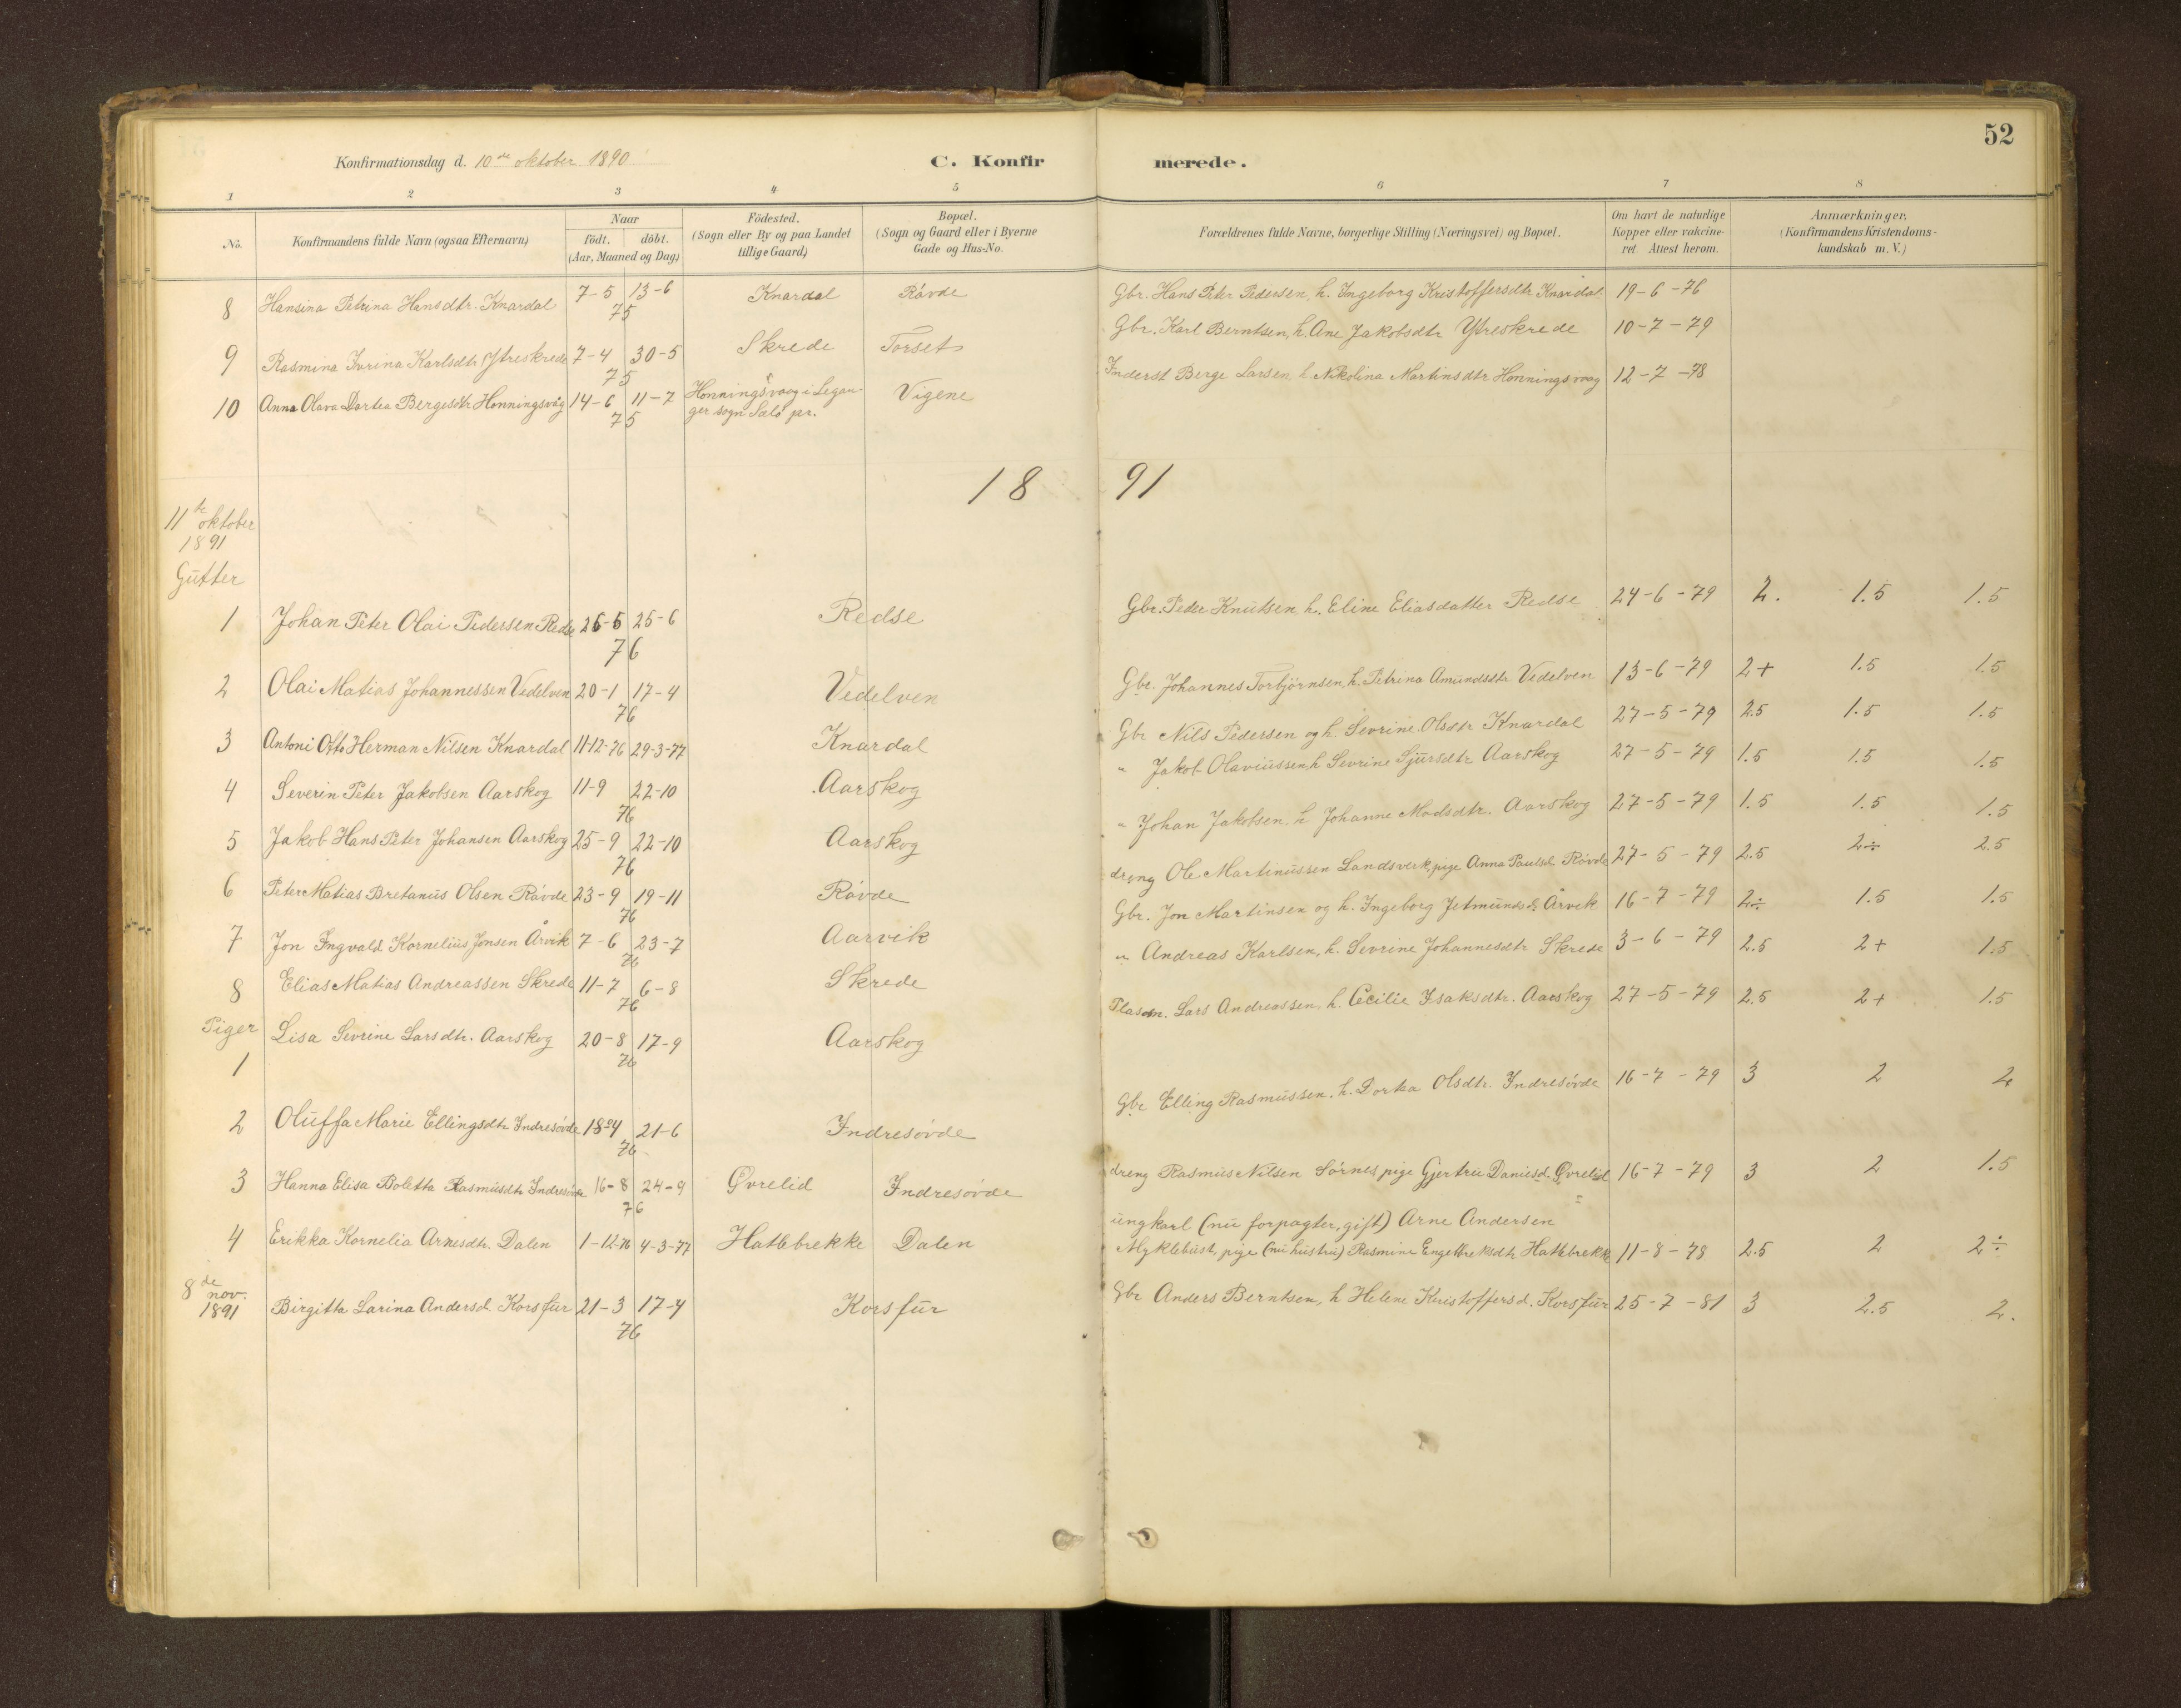 52
Konfirmationsdag d. 10de oktober 1890
C. Konfirmerede.
1 2 3 4 5 6 7 8
No.
Konfirmandens fulde Navn (ogsaa Efternavn)
Naar
födt. döbt.
(Aar, Maaned og Dag)
Födested.
(Sogn eller By og paa Landet
tillige Gaard)
Bopæl.
(Sogn og Gaard eller i Byerne
Gade og Hus-No.
Forældrenes fulde Navne, borgerlige Stilling (Næringsvei) og Bopæl.
Om havt de naturlige
Kopper eller vakcine-
ret Attest herom.
Anmærkninger.
(Konfirmandens Kristendoms-
kundskab m. V.)
8 Hansina Petrina Hansdtr. Knardal 7-5 13-6 75 Knardal Rövde Gbr. Hans Peter Pedersen, h. Ingeborg Kristoffersdtr Knardal 19-6-76
9 Rasmina Ivrina Karlsdtr Ytreskrede 7-4 30-5 75 Skrede Torset Gbr. Karl Berntsen, h. Ane Jakobsdtr Ytreskrede 10-7-79
10 Anna Olava Dortea Bergesdtr Honningsvåg 14-6 11-7 75 Honningsvaag i Legan-
ger sogn Sælö pr. Vigene Inderst Berge Larsen, h. Nikolina Martinsdtr Honningsvaag 12-7-78
1891
11te oktober
1891
Gutter
1 Johan Peter Olai Pedersen Redse 26-5 25-6 76 Redse Gbr. Peder Knutsen, h. Eline Eliasdatter Redse 24-6-79 2. 1.5 1.5
2 Olai Matias Johannessen Vedelven 20-1 17-4 76 Vedelven Gbr. Johannes Torbjörnsen, h. Petrina Amundsdtr Vedelven 13-6-79 2+ 1.5 1.5
3 Antoni Otto Herman Nilsen Knardal 11-12-76 29-3-77 Knardal Gbr Nils Pedersen og h. Sevrine Olsdtr Knardal 27-5-79 2.5 1.5 1.5
4 Severin Peter Jakobsen Aarskog 11-9 22-10 76 Aarskog " Jakob Olaviussen h Sevrine Sjursdtr Aarskog 27-5-79 1.5 1.5 1.5
5 Jakob Hans Peter Johansen Aarskog 25-9 22-10 76 Aarskog " Johan Jakobsen, h Johanne Madsdtr. Aarskog 27-5-79 1.5 1.5 1.5
6 Peter Matias Bretanus Olsen Rövde 23-9 19-11 76 Rövde dreng Ole Martinussen Landsverk, pige Anna Paulsd. Rövde 27-5-79 2.5 2÷ 2.5
7 Jon Ingvald Kornelius Jonsen Årvik 7-6 23-7 76 Aarvik Gbr. Jon Martinsen og h. Ingeborg Jetmundsd. Årvik 16-7-79 2÷ 1.5 1.5
8 Elias Matias Andreassen Skrede 11-7 6-8 76 Skrede " Andreas Karlsen, h. Sevrine Johannesdtr Skrede 3-6-79 2.5 2+ 1.5
Piger
1 Lisa Sevrine Larsdtr. Aarskog 20-8 17-9 76 Aarskog Pladsm. Lars Andreassen, h. Cecilie Isaksdtr. Aarskog 27-5-79 2.5 2+ 1.5
2 Oluffa Marie Ellingsdtr Indresövde 18-4 21-6 76 Indresövde Gbr Elling Rasmussen, h. Dorka Olsdtr. Indresövde 16-7-79 3 2 2
3 Hanna Elisa Boletta Rasmusdtr Indresövde 16-8 24-9 76 Øvrelid Indresövde dreng Rasmus Nilsen Sörnes, pige Gjertru Danielsd. Øvrelid 16-7-79 3 2 1.5
4 Erikka Kornelia Arnesdtr. Dalen 1-12-76 4-3-77 Hatlebrekke Dalen ungkarl (nu forpagter, gift) Arne Andersen
Myklebust, pige (nu hustru) Rasmine Engelbrektsdtr Hatlebrekke 11-8-78 2.5 2 2÷
8de nov.
1891 Birgitta Larina Andersd. Korsfur 21-3 17-4 76 Korsfur Gbr Anders Berntsen, h Helene Kristoffersd. Korsfur 25-7-81 3 2.5 2.